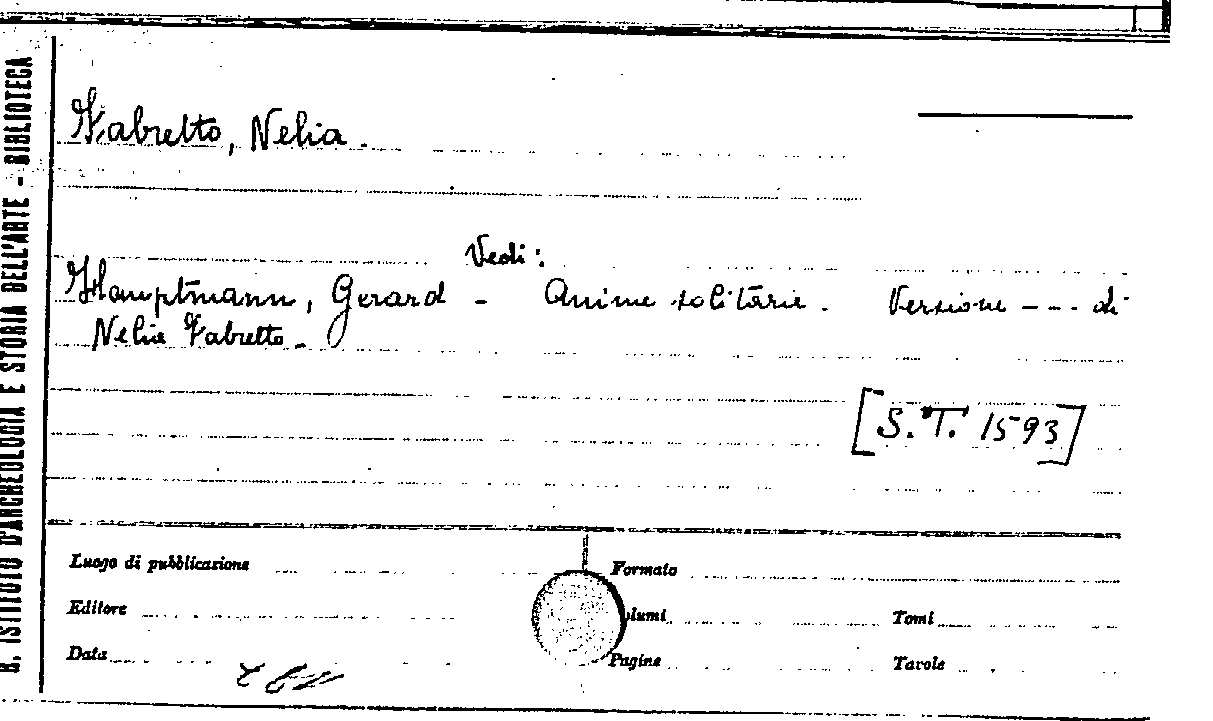 R. ISTITUTO D'ARCHEOLOGIA E STORIA DELL'ARTE - BIBLIOTECA
Fabretto, Nelia.
Vedi:
Hauptmann, Gerard - Anime solitarie. Versione --- di
Nelia Fabretto.
[S.T. 1593]
Luogo di pubblicazione
Formato
Editore
olumi
Tomi
Data
Pagine
Tavole